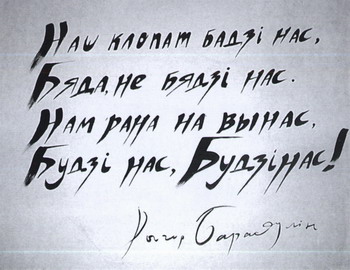 Наш клопат бадзі нас,
Бяда, не бядзі нас.
Нам рана на вынас,
Будзі нас, Будзінас!
Рыгор Барадулін